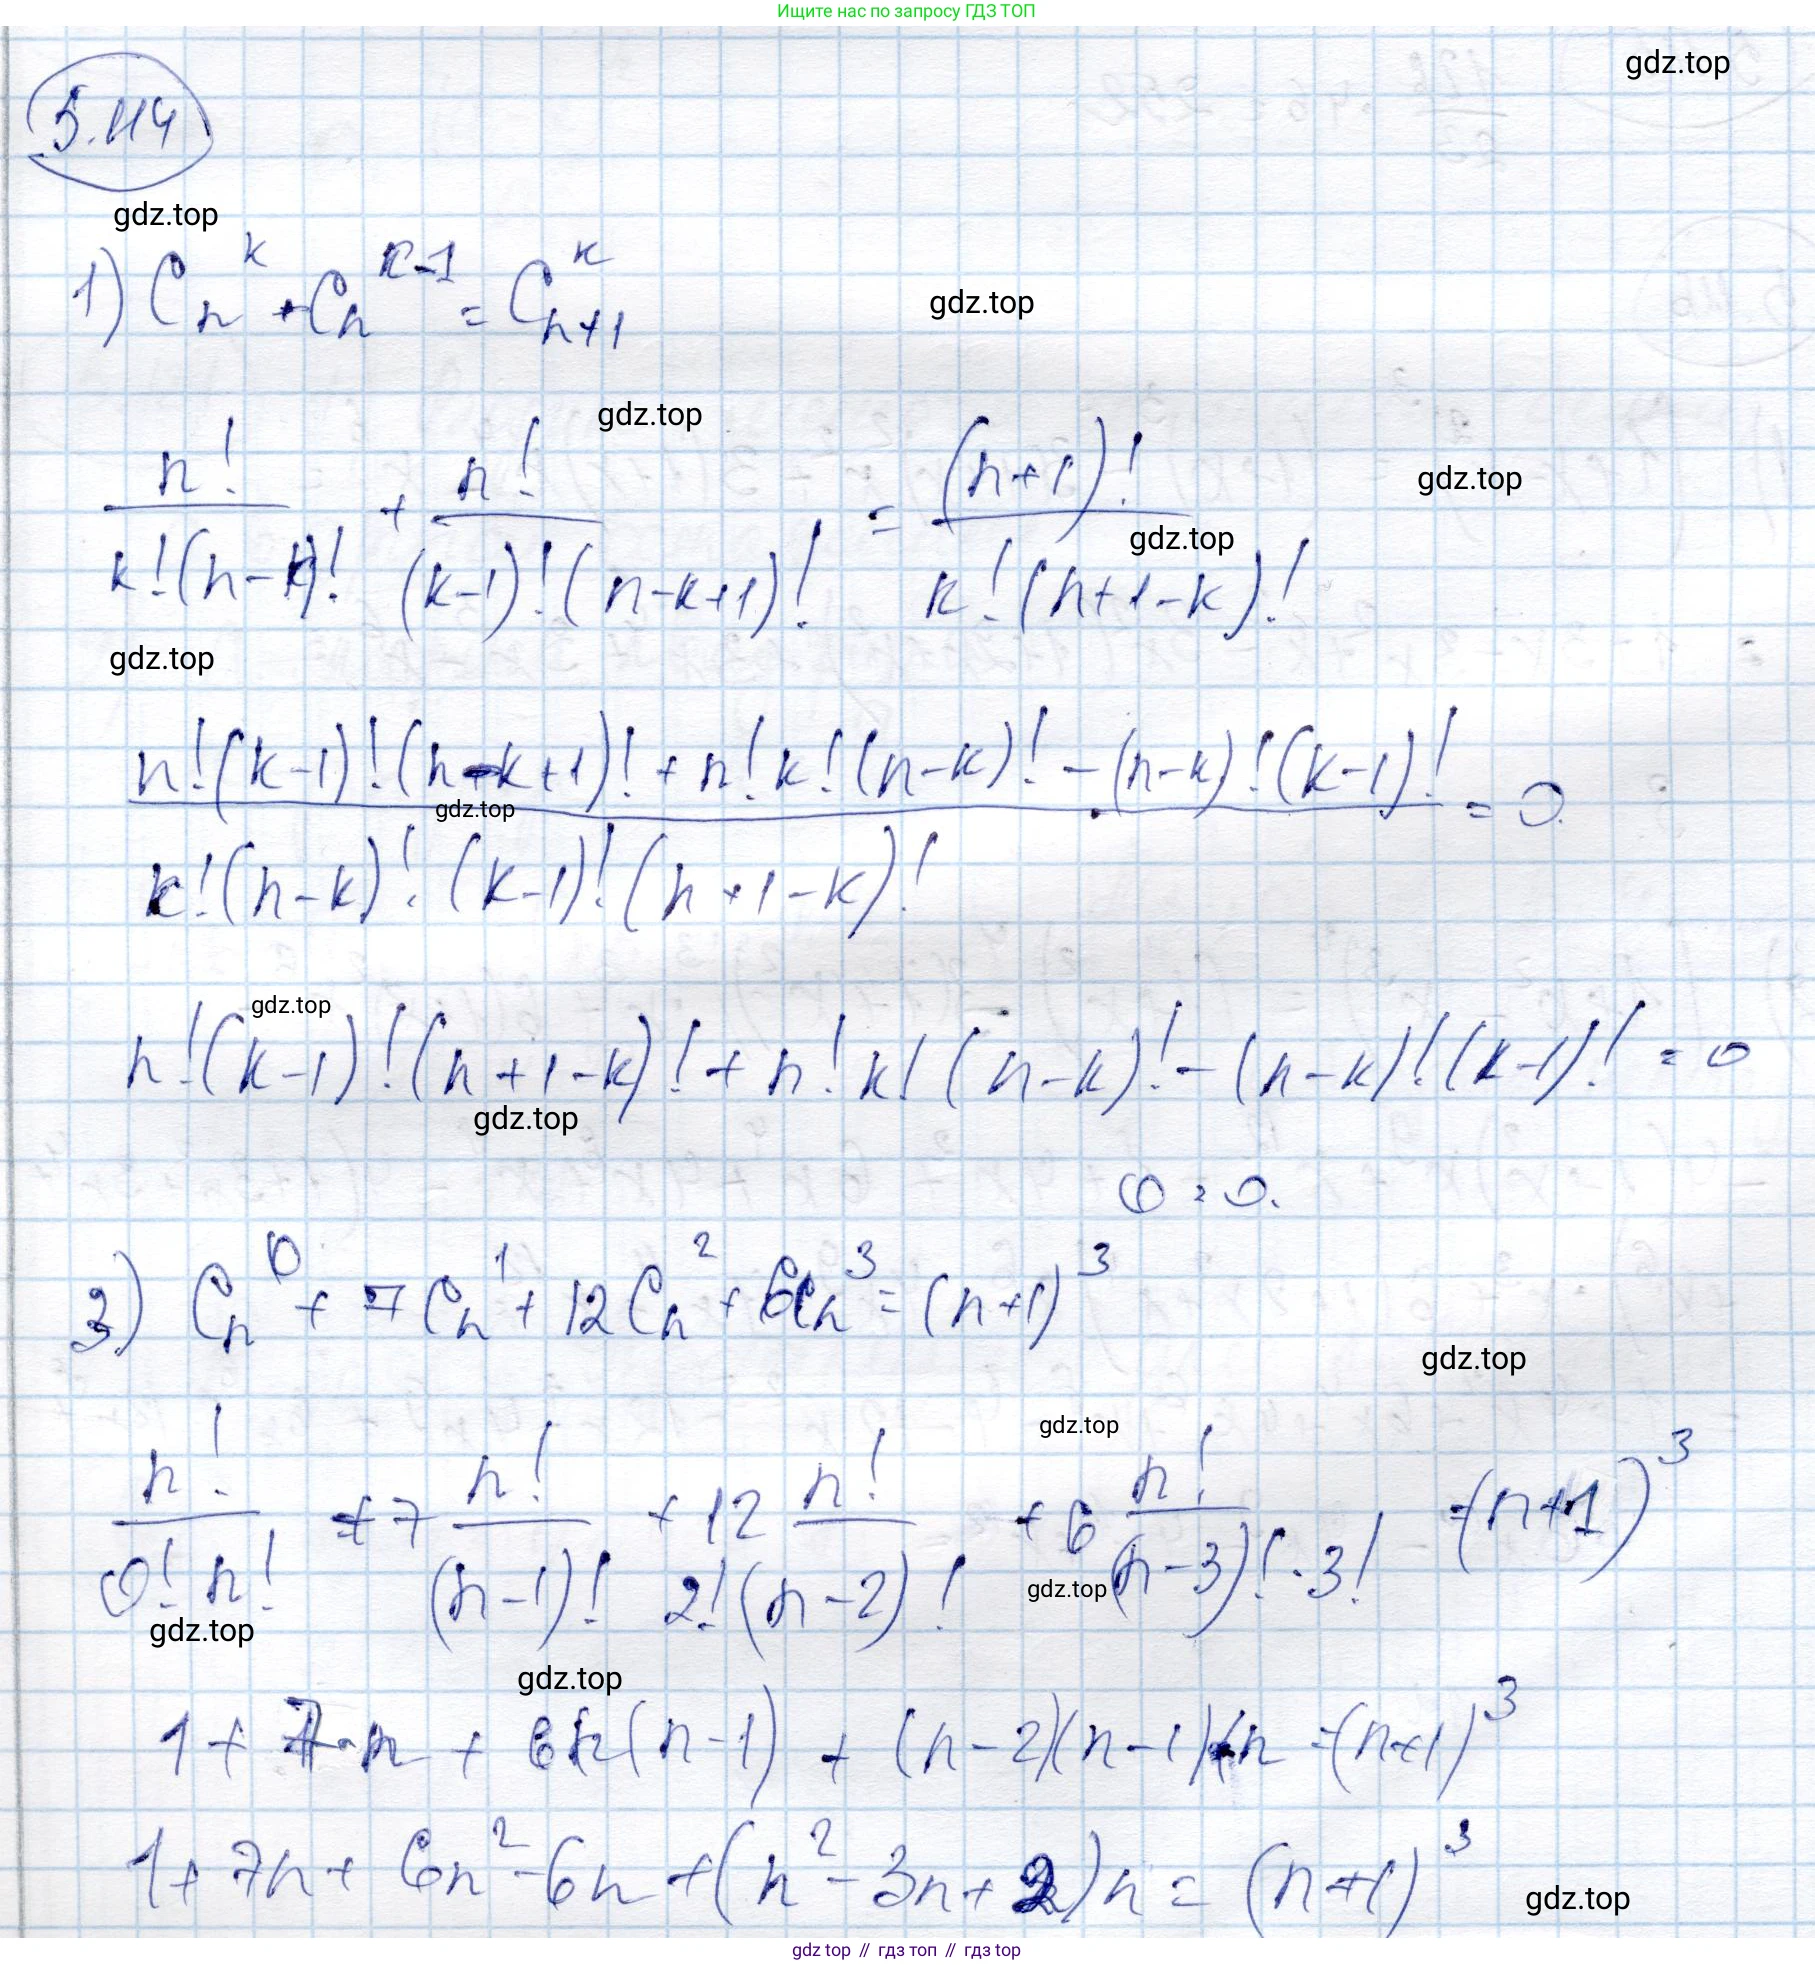 Ищите нас по запросу ГДЗ ТОП
gdz.top
5.114
gdz.top
1) C_n^k + C_n^{k-1} = C_{n+1}^k
gdz.top
gdz.top
n!/(k!(n-k)!) + n!/((k-1)!(n-k+1)!) = (n+1)!/(k!(n+1-k)!)
gdz.top
gdz.top
gdz.top
(n!(k-1)!(n-k+1)! + n!k!(n-k)! - (n-k)!(k-1)!)/(k!(n-k)!·(k-1)!(n+1-k)!) = 0.
gdz.top
gdz.top
n!(k-1)!(n+1-k)! + n!k!(n-k)! - (n-k)!(k-1)! = 0
gdz.top
0 = 0.
3) C_n^0 + 7C_n^1 + 12C_n^2 + 6C_n^3 = (n+1)^3
gdz.top
gdz.top
n!/(0! n!) + 7 n!/(n-1)! + 12 n!/(2!(n-2)!) + 6 n!/((n-3)!·3!) = (n+1)^3
gdz.top
gdz.top
gdz.top
1 + 7·n + 6n(n-1) + (n-2)(n-1)n = (n+1)^3
1 + 7n + 6n^2 - 6n + (n^2 - 3n + 2)n = (n+1)^3
gdz.top
gdz top // гдз топ // гдз top